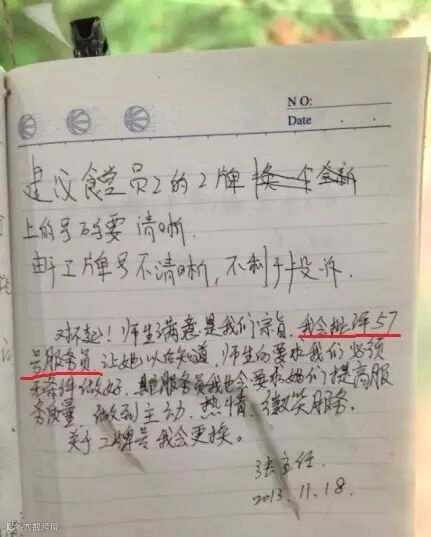 NO:
Date
建议食堂员工的工牌换一个全新
上的号码要清晰.
由于工牌号不清晰,不利于投诉.
对不起!师生满意是我们宗旨,我会批评57
号服务员,让她以后知道,师生的要求我们必须
无条件做好.其它服务员我也会要求她们提高服
务质量,做到主动、热情、微笑服务.
关于工牌号我会更换。
张主任.
2013.11.18.
大数跨境